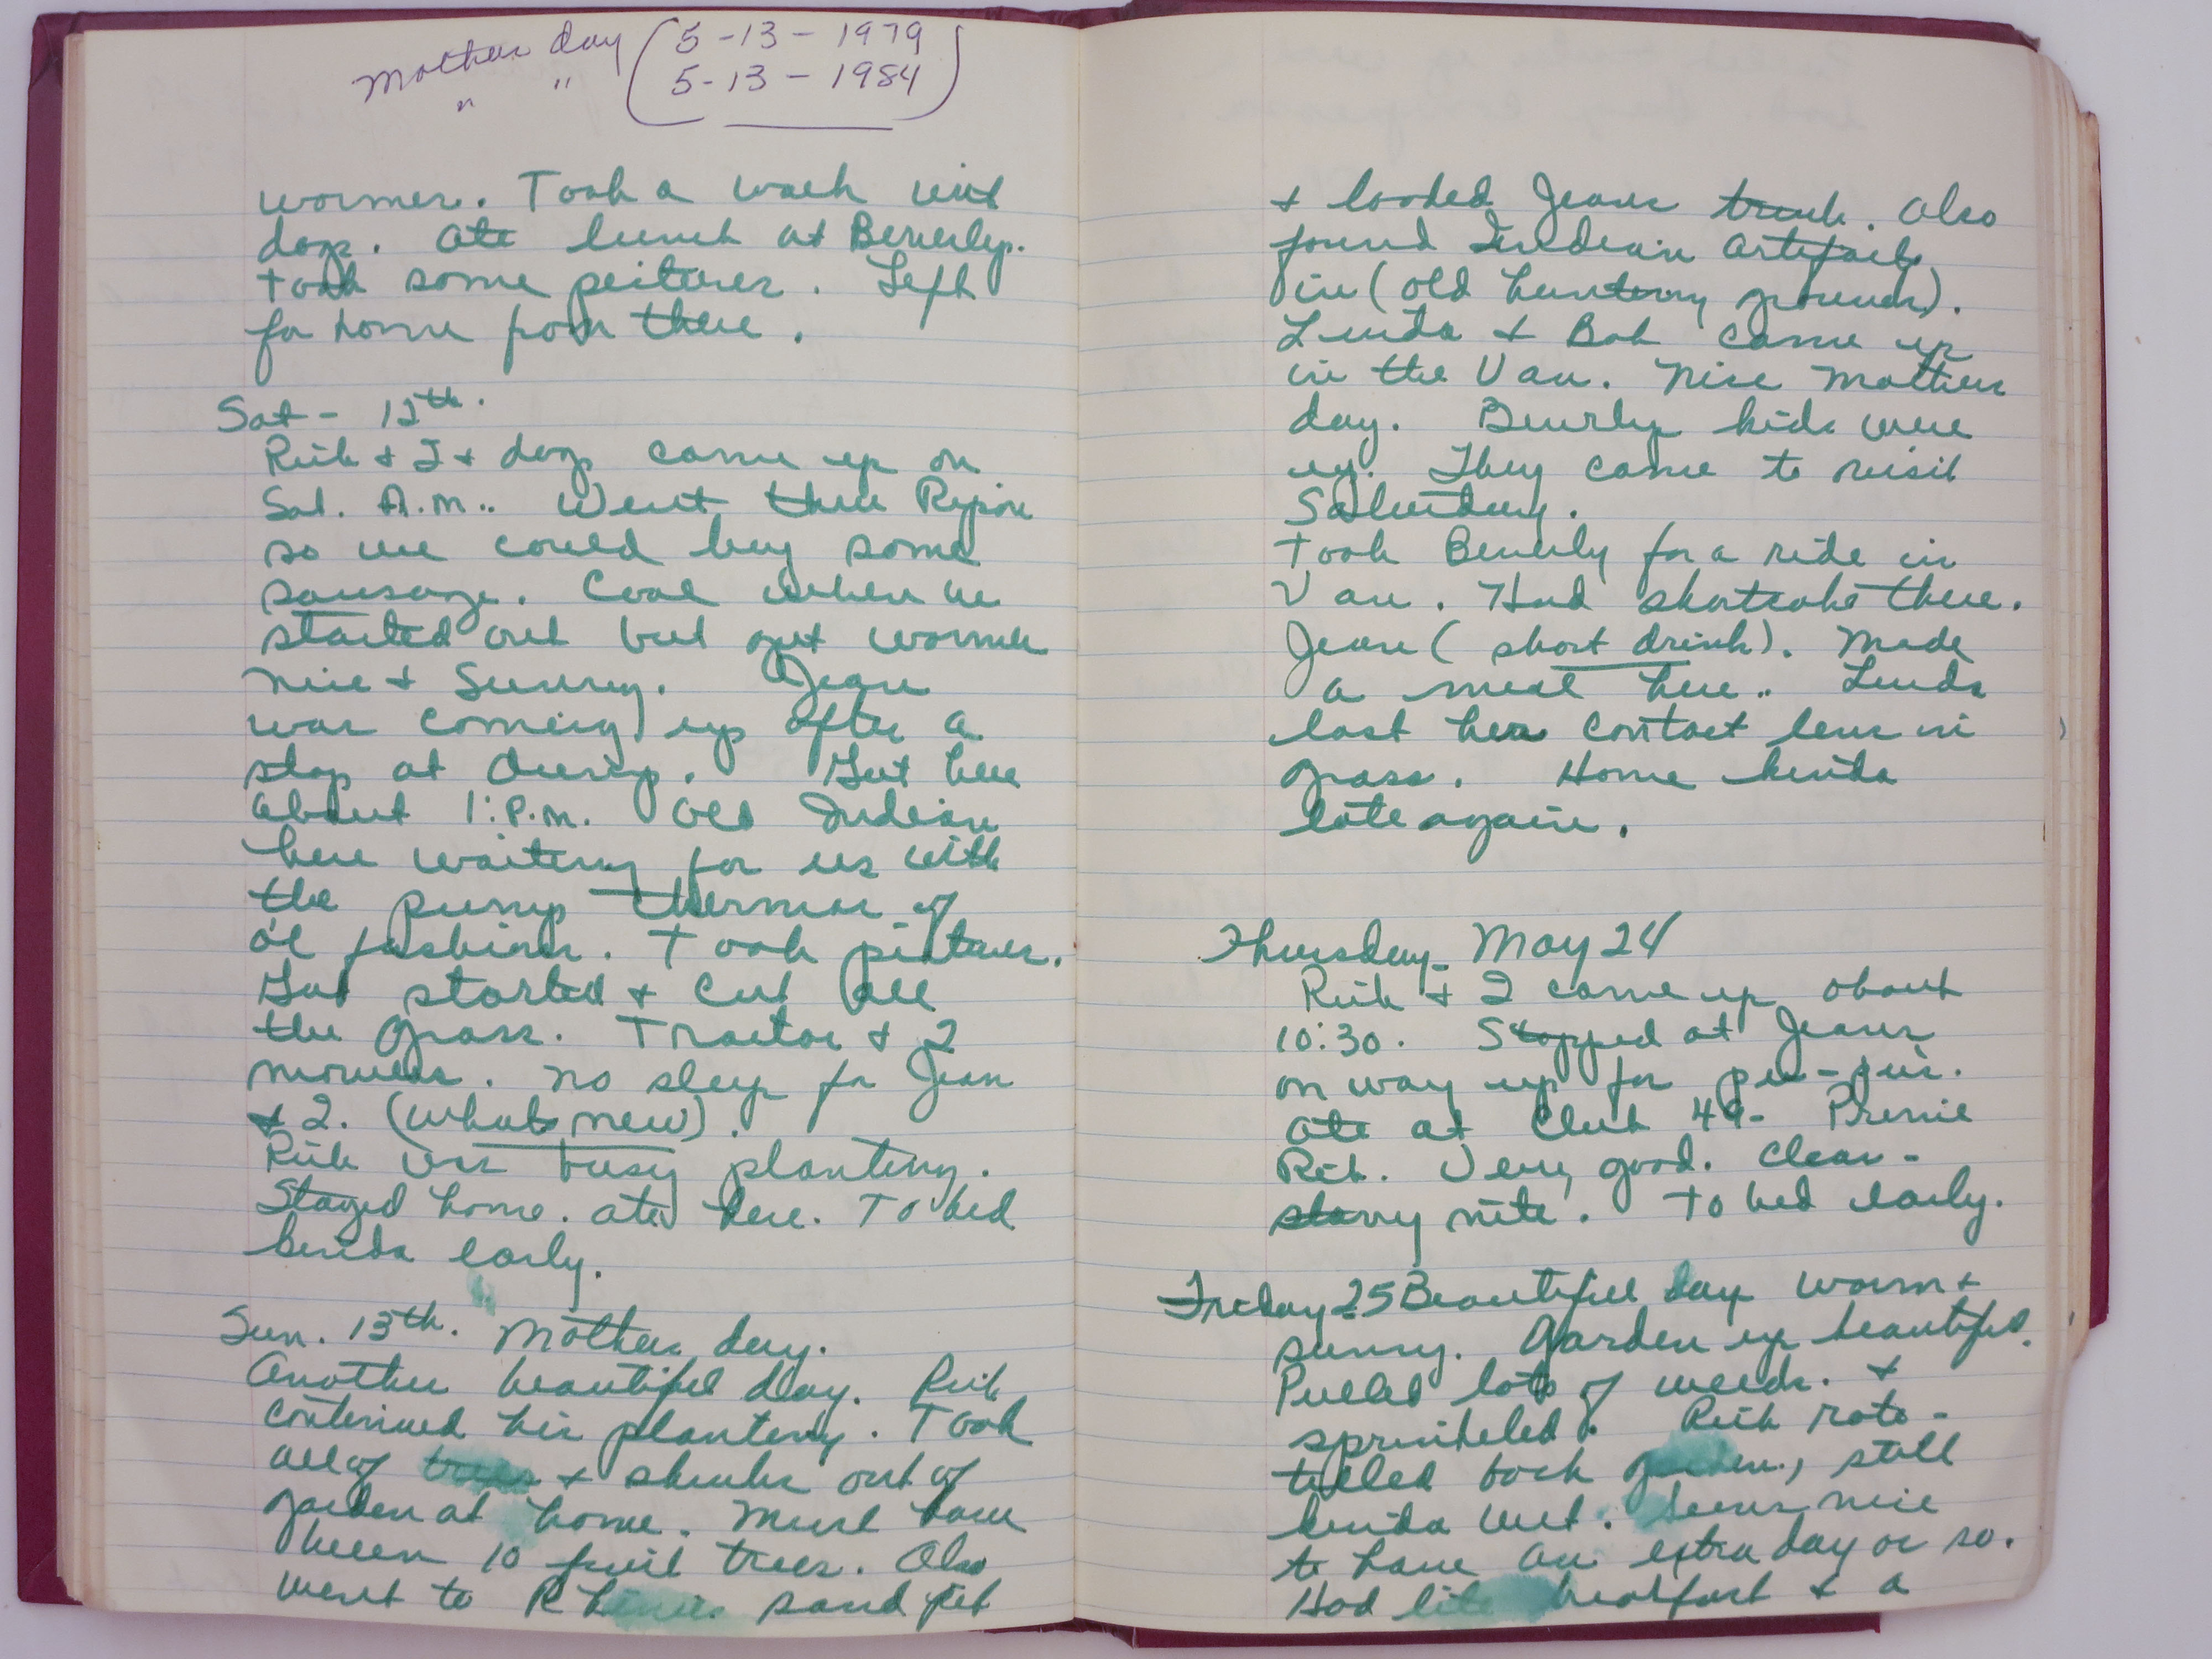 Mother day (5-13-1979
" " 5-13-1984)
warmer. Took a walk with
dogs. Ate lunch at Beverlys.
Took some pictures. Left
for home from there.
Sat - 12th.
Rich + I + dogs came up on
Sat. A.m.. Went thru Ripon
so we could buy some
sausage. Cool when we
started out but got warmer
nice + Sunny. Jean
was coming up after a
stop at . Got here
about 1: P.m. Old Indian
here waiting for us with
the pump thermos of
ol fashions. Took pictures.
Got started + cut all
the grass. Tractor + 2
mowers. no sleep for Jean
+ I. (whats new).
Rich was busy planting.
Stayed home. ate here. To bed
kinda early.
Sun. 13th. Mothers day.
Another beautiful day. Rich
continued his planting. Took
all of trees + shrubs out of
garden at home. Must have
been 10 fruit trees. Also
went to sand pit
+ loaded Jeans trunk. Also
found Indian artifacts
in (old hunting grounds).
Linda + Bob came up
in the Van. Nice Mothers
day. Beverly kids were
up. They came to visit
Saturday.
Took Beverly for a ride in
Van. Had shortcake there.
Jean (short drink). Made
a meal here.. Linda
lost her contact lens in
grass. Home kinda
late again.
Thursday - May 24
Rich + I came up about
10:30. Stopped at Jeans
on way up for
Ate at Club 49- Prime
Rib. Very good. Clear -
starry nite. To bed early.
Friday 25 Beautiful day warm +
sunny. Garden up beautiful.
Pulled lots of weeds. +
sprinkeled. Rich roto -
tilled back garden, still
kinda wet. Seems nice
to have an extra day or so.
Had lite breakfast + a